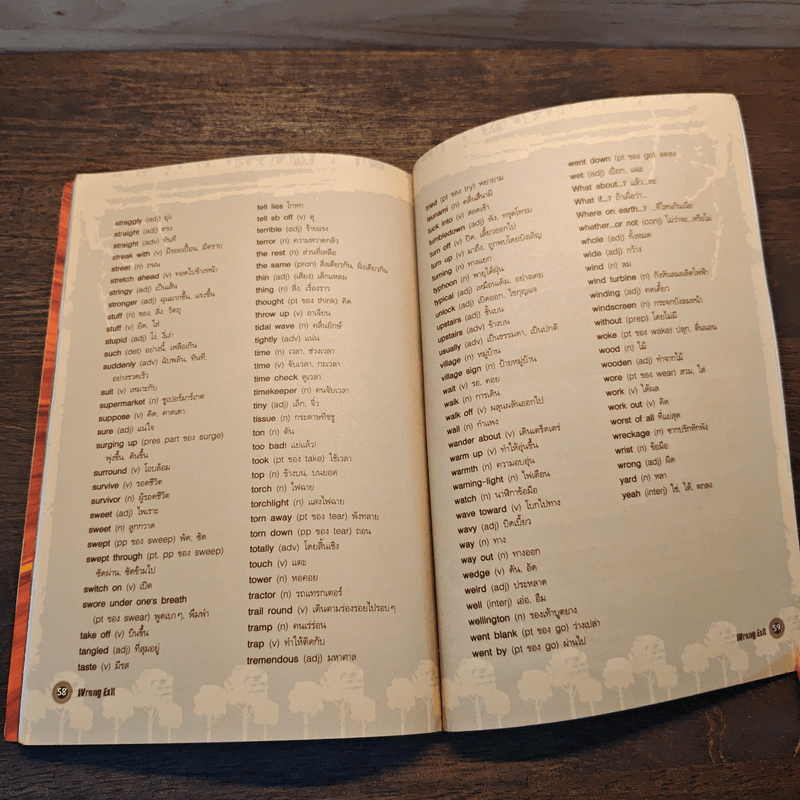 straggly (adj) ยุ่ง
straight (adj) ตรง
straight (adv) ทันที
streak with (v) มีรอยเปื้อน, มีคราบ
street (n) ถนน
stretch ahead (v) ทอดไปข้างหน้า
stringy (adj) เป็นเส้น
stronger (adj) ฉุนมากขึ้น, แรงขึ้น
stuff (n) ของ, สิ่ง, วัตถุ
stuff (v) ยัด, ใส่
stupid (adj) โง่, งี่เง่า
such (det) อย่างนี้, เหลือเกิน
suddenly (adv) ฉับพลัน, ทันที,
อย่างรวดเร็ว
suit (v) เหมาะกับ
supermarket (n) ซูเปอร์มาร์เกต
suppose (v) คิด, คาดเดา
sure (adj) แน่ใจ
surging up (pres part ของ surge)
พุ่งขึ้น, ดันขึ้น
surround (v) โอบล้อม
survive (v) รอดชีวิต
survivor (n) ผู้รอดชีวิต
sweet (adj) ไพเราะ
sweet (n) ลูกกวาด
swept (pp ของ sweep) พัด, ซัด
swept through (pt, pp ของ sweep)
ซัดผ่าน, ซัดข้ามไป
switch on (v) เปิด
swore under one's breath
(pt ของ swear) พูดเบาๆ, พึมพำ
take off (v) บินขึ้น
tangled (adj) ที่สุมอยู่
taste (v) มีรส
tell lies โกหก
tell sb off (v) ดุ
terrible (adj) ร้ายแรง
terror (n) ความหวาดกลัว
the rest (n) ส่วนที่เหลือ
the same (pron) สิ่งเดียวกัน, ฝั่งเดียวกัน
thin (adj) (เสียง) เล็กแหลม
thing (n) สิ่ง, เรื่องราว
thought (pt ของ think) คิด
throw up (v) อาเจียน
tidal wave (n) คลื่นยักษ์
tightly (adv) แน่น
time (n) เวลา, ช่วงเวลา
time (v) จับเวลา, กะเวลา
time check ดูเวลา
timekeeper (n) คนจับเวลา
tiny (adj) เล็ก, จิ๋ว
tissue (n) กระดาษทิชชู
ton (n) ตัน
too bad! แย่แล้ว!
took (pt ของ take) ใช้เวลา
top (n) ข้างบน, บนยอด
torch (n) ไฟฉาย
torchlight (n) แสงไฟฉาย
torn away (pt ของ tear) พังทลาย
torn down (pp ของ tear) ถอน
totally (adv) โดยสิ้นเชิง
touch (v) แตะ
tower (n) หอคอย
tractor (n) รถแทรกเตอร์
trail round (v) เดินตามร่องรอยไปรอบๆ
tramp (n) คนเร่ร่อน
trap (v) ทำให้ติดกับ
tremendous (adj) มหาศาล
58 Wrong Exit
tried (pt ของ try) พยายาม
tsunami (n) คลื่นสึนามิ
tuck into (v) สอดเข้า
tumbledown (adj) พัง, ทรุดโทรม
turn off (v) ปิด, เลี้ยวออกไป
turn up (v) มาถึง, ถูกพบโดยบังเอิญ
turning (n) ทางแยก
typhoon (n) พายุไต้ฝุ่น
typical (adj) เหมือนเดิม, อย่างเคย
unlock (adj) เปิดออก, ไขกุญแจ
upstairs (adj) ชั้นบน
upstairs (adv) ข้างบน
usually (adv) เป็นธรรมดา, เป็นปกติ
village (n) หมู่บ้าน
village sign (n) ป้ายหมู่บ้าน
wait (v) รอ, คอย
walk (n) การเดิน
walk off (v) ผลุนผลันออกไป
wall (n) กำแพง
wander about (v) เดินเตร็ดเตร่
warm up (v) ทำให้อุ่นขึ้น
warmth (n) ความอบอุ่น
warning-light (n) ไฟเตือน
watch (n) นาฬิกาข้อมือ
wave toward (v) โบกไปทาง
wavy (adj) บิดเบี้ยว
way (n) ทาง
way out (n) ทางออก
wedge (v) ดัน, อัด
weird (adj) ประหลาด
well (interj) เอ่อ, อืม
wellington (n) รองเท้าบูตยาง
went blank (pt ของ go) ว่างเปล่า
went by (pt ของ go) ผ่านไป
went down (pt ของ go) ลดลง
wet (adj) เปียก, แฉะ
What about...? แล้ว...ล่ะ
What if...? ถ้าเผื่อว่า...
Where on earth...? ...ที่ไหนกันเนี่ย
whether...or not (conj) ไม่ว่าจะ...หรือไม่
whole (adj) ทั้งหมด
wide (adj) กว้าง
wind (n) ลม
wind turbine (n) กังหันลมผลิตไฟฟ้า
winding (adj) คดเคี้ยว
windscreen (n) กระจกบังลมหน้า
without (prep) โดยไม่มี
woke (pt ของ wake) ปลุก, ตื่นนอน
wood (n) ไม้
wooden (adj) ทำจากไม้
wore (pt ของ wear) สวม, ใส่
work (v) ได้ผล
work out (v) คิด
worst of all ที่แย่สุด
wreckage (n) ซากปรักหักพัง
wrist (n) ข้อมือ
wrong (adj) ผิด
yard (n) หลา
yeah (interj) ใช่, ได้, ตกลง
Wrong Exit 59